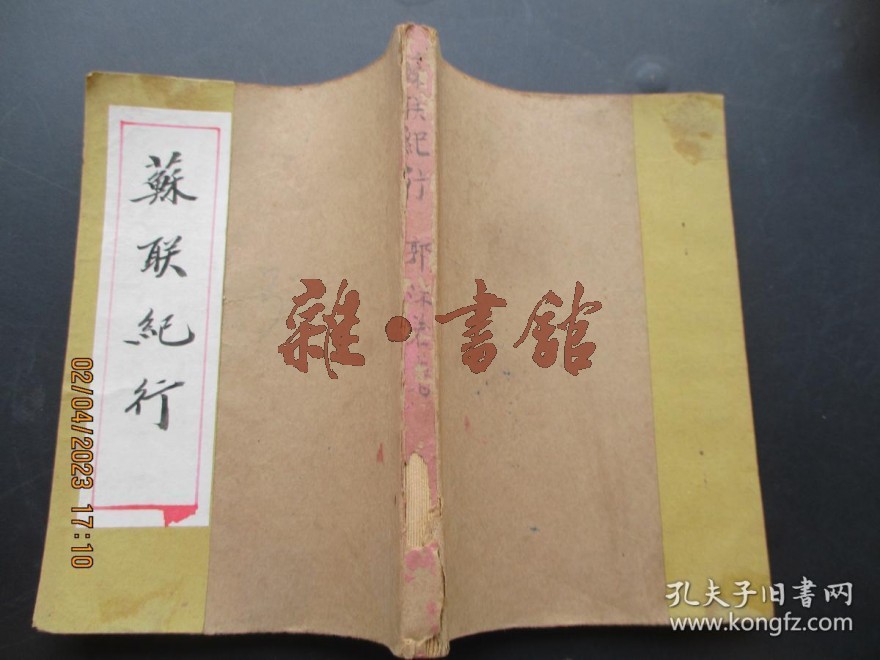 蘇联紀行
联紀行 郭沫
雜·書舘
02/04/2023 17:10
孔夫子旧书网
www.kongfz.com